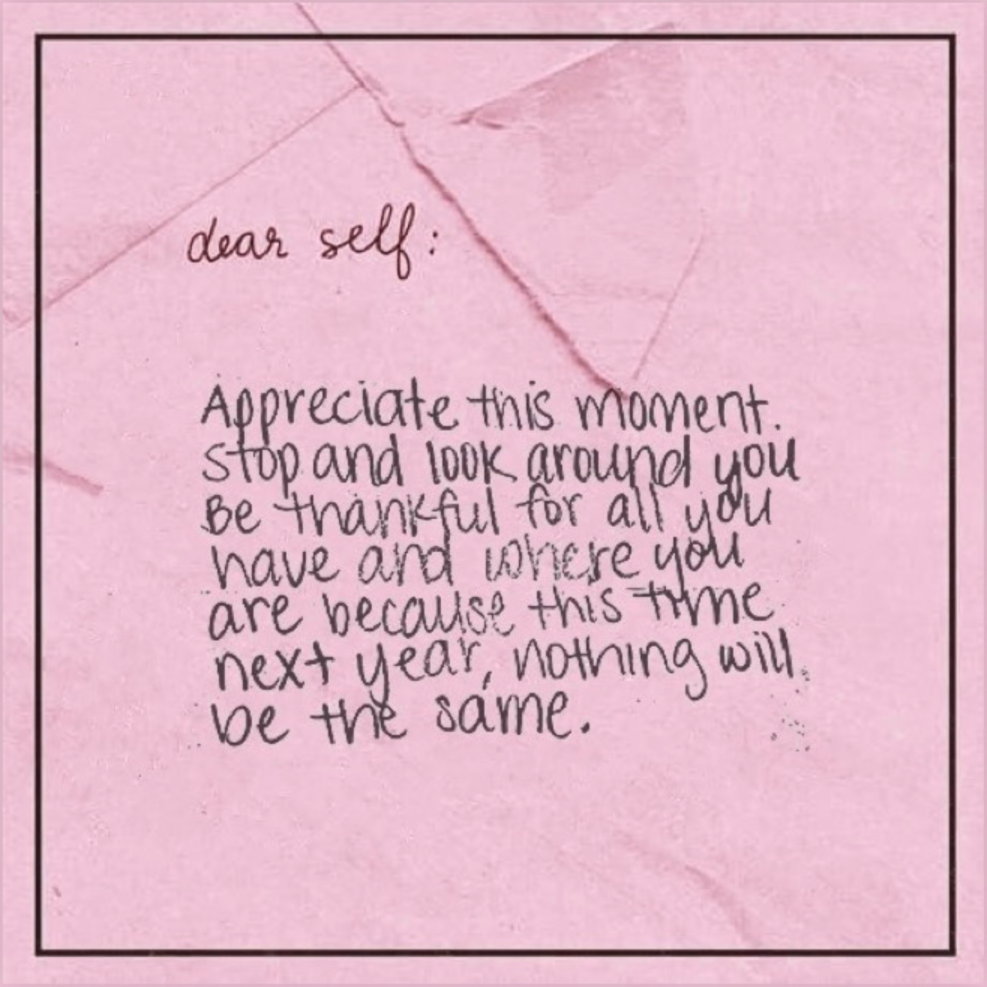 dear self:
Appreciate this moment.
Stop and look around you
Be thankful for all you
have and where you
are because this time
next year, nothing will
be the same.